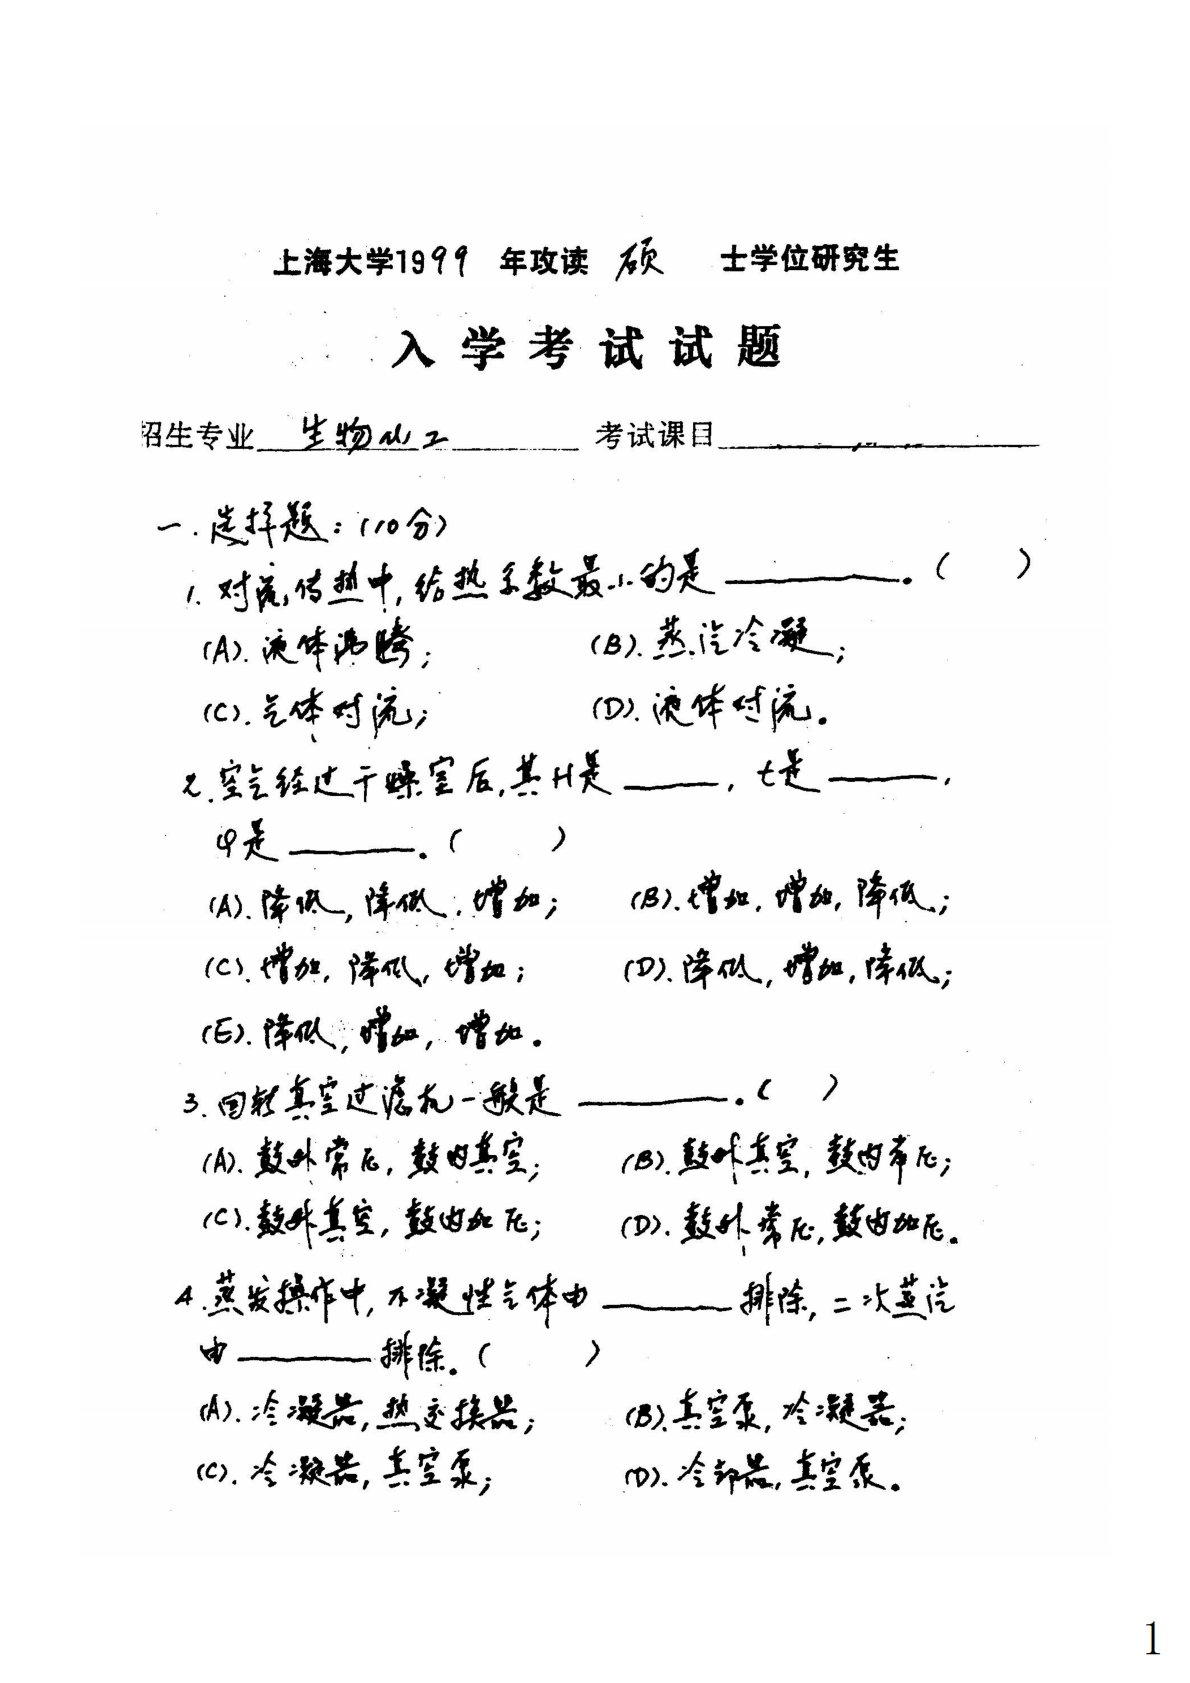 上海大学1999 年攻读 硕 士学位研究生
入学考试试题
招生专业 生物化工 考试课目
一.选择题:(10分)
1.对流传热中,给热系数最小的是________.( )
(A).液体沸腾; (B).蒸汽冷凝;
(C).气体对流; (D).液体对流.
2.空气经过干燥室后,其H是_____,t是_____,
φ是_____.( )
(A).降低,降低,增加; (B).增加,增加,降低;
(C).增加,降低,增加; (D).降低,增加,降低;
(E).降低,增加,增加.
3.回转真空过滤机一般是_______.( )
(A).鼓外常压,鼓内真空; (B).鼓外真空,鼓内常压;
(C).鼓外真空,鼓内加压; (D).鼓外常压,鼓内加压.
4.蒸发操作中,不凝性气体由______排除,二次蒸汽
由______排除.( )
(A).冷凝器,热交换器; (B).真空泵,冷凝器;
(C).冷凝器,真空泵; (D).冷却器,真空泵.
1